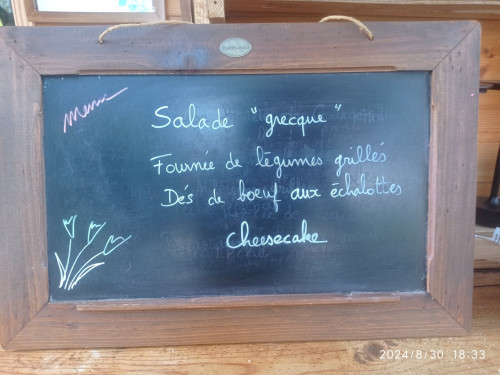 Menu
Salade "grecque"
Fournée de légumes grillés
Dés de boeuf aux échalottes
Cheesecake
2024/8/30 18:33